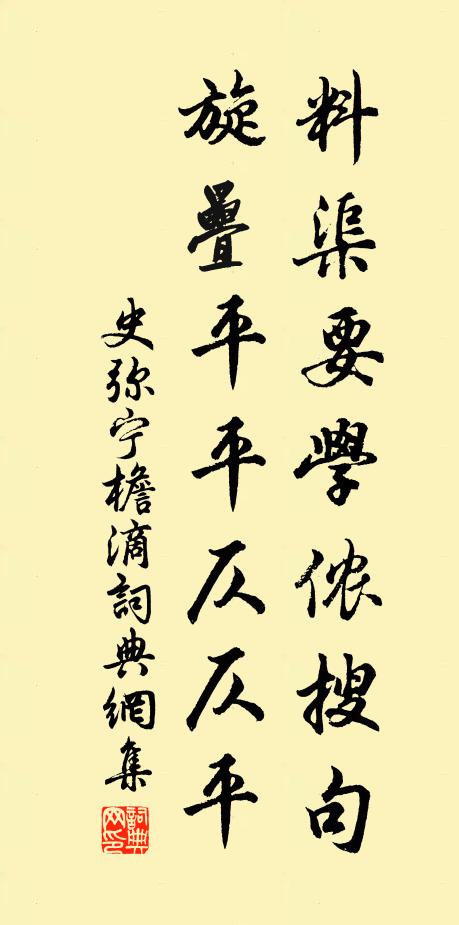 料渠要學侬搜句
旋疊平平仄仄平
史弥宁檐滴詞典網集
詞典网印